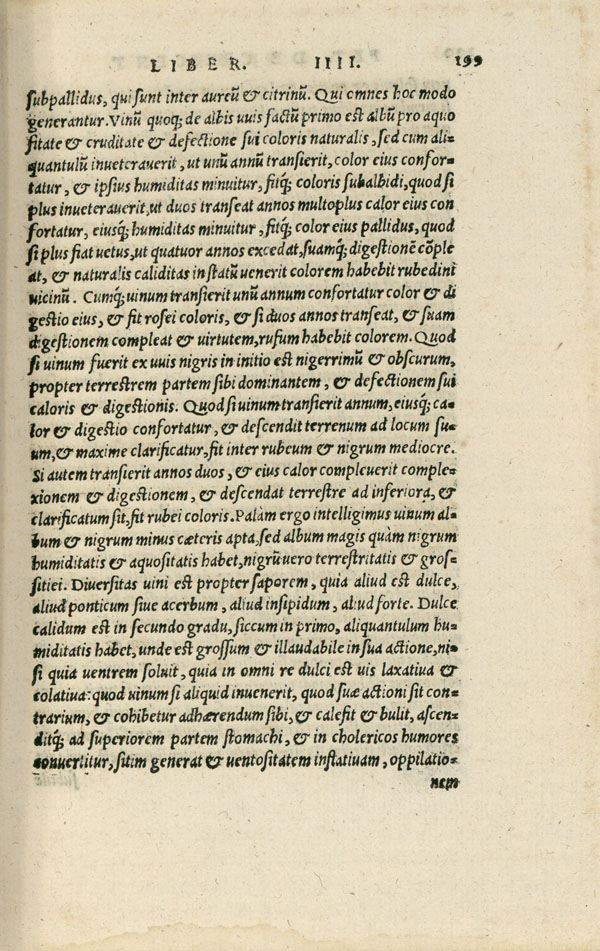 LIBER. IIII. 199
subpallidus, qui sunt inter aureũ & citrinũ. Qui omnes hoc modo
generantur. Vinũ quoq; de albis uuis factũ primo est albũ pro aquo
sitate & cruditate & defectione sui coloris naturalis, sed cum ali-
quantulũ inueterauerit, ut unũ annũ transierit, color eius confor-
tatur, & ipsius humiditas minuitur, fitq; coloris subalbidi, quod si
plus inueterauerit, ut duos transeat annos multoplus calor eius con
fortatur, eiusq; humiditas minuitur, fitq; color eius pallidus, quod
si plus fiat uetus, ut quatuor annos excedat, suamq; digestionẽ cõple
at, & naturalis caliditas in statũ uenerit colorem habebit rubedini
uicinũ. Cumq; uinum transierit unũ annum confortatur color & di
gestio eius, & fit rosei coloris, & si duos annos transeat, & suam
digestionem compleat & uirtutem, rufum habebit colorem. Quod
si uinum fuerit ex uuis nigris in initio est nigerrimũ & obscurum,
propter terrestrem partem sibi dominantem, & defectionem sui
caloris & digestionis. Quod si uinum transierit annum, eiusq; ca-
lor & digestio confortatur, & descendit terrenum ad locum su-
um, & maxime clarificatur, fit inter rubeum & nigrum mediocre.
Si autem transierit annos duos, & eius calor compleuerit comple-
xionem & digestionem, & descendat terrestre ad inferiora, &
clarificatum sit, fit rubei coloris. Palàm ergo intelligimus uinum al-
bum & nigrum minus cæteris apta, sed album magis quàm nigrum
humiditatis & aquositatis habet, nigrũ uero terrestritatis & gros-
sitiei. Diuersitas uini est propter saporem, quia aliud est dulce,
aliud ponticum siue acerbum, aliud insipidum, aliud forte. Dulce
calidum est in secundo gradu, siccum in primo, aliquantulum hu-
miditatis habet, unde est grossum & illaudabile in sua actione, ni-
si quia uentrem soluit, quia in omni re dulci est uis laxatiua &
colatiua: quod uinum si aliquid inuenerit, quod suæ actioni sit con-
trarium, & cohibetur adhærendum sibi, & calefit & bulit, ascen-
ditq; ad superiorem partem stomachi, & in cholericos humores
conuertitur, sitim generat & uentositatem inflatiuam, oppilatio-
nem